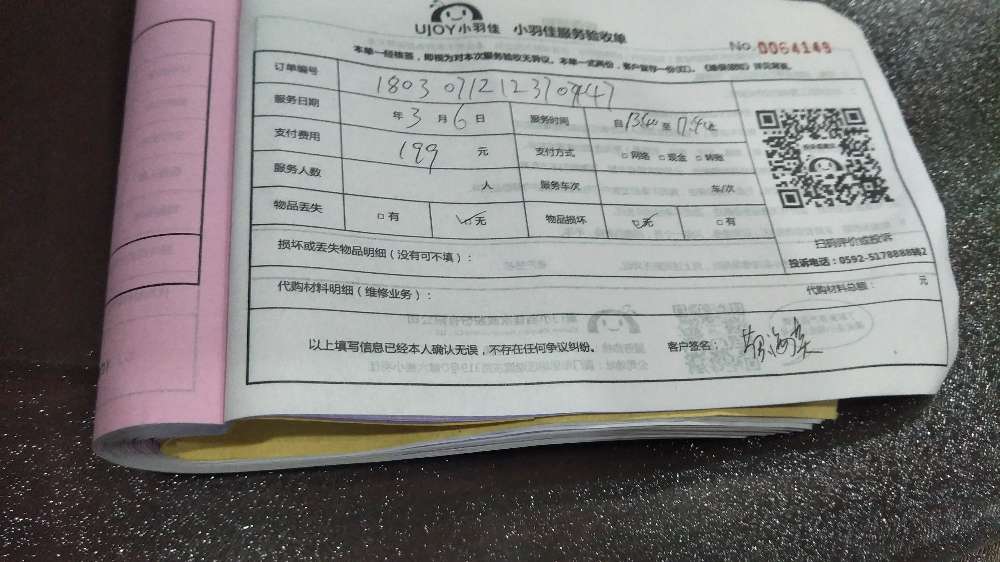 UJOY小羽佳 小羽佳服务验收单
No 0064149
本单一经核签，即视为对本次服务验收无异议。本单一式两份，客户留存一份(红)。
订单编号
服务日期 年3月6日 服务时间 自13:40至17:40
支付费用 199元 支付方式 □网络 □现金 □转账
服务人数 人 服务车次 车/次
物品丢失 □有 ☑无 物品损坏 ☑无 □有
扫码评价或投诉
投诉电话：0592-5178888转2
损坏或丢失物品明细（没有可不填）：
代购材料明细（维修业务）： 代购材料总额： 元
以上填写信息已经本人确认无误，不存在任何争议纠纷。 客户签名：